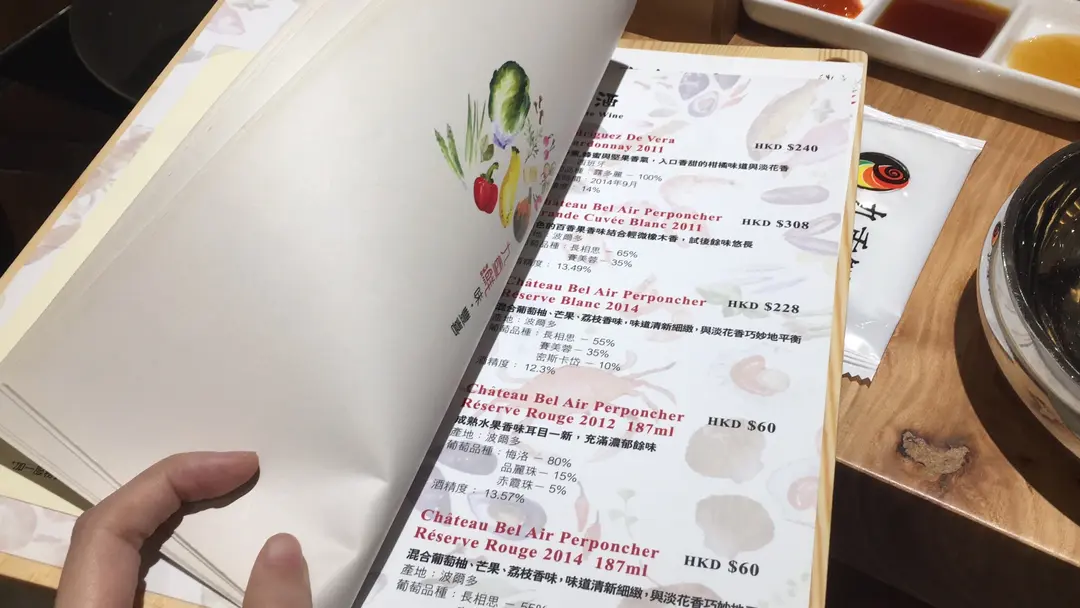 酒
Wine
riguez De Vera
rdonnay 2011
HKD $240
蜂蜜與堅果香氣，入口香甜的柑橘味道與淡花香
班牙
霞多麗 － 100%
2014年9月
14%
Château Bel Air Perponcher
Grande Cuvée Blanc 2011
HKD $308
色的百香果香味結合輕微橡木香，試後餘味悠長
地：波爾多
品種：長相思 － 65%
賽美蓉 － 35%
精度： 13.49%
Château Bel Air Perponcher
Réserve Blanc 2014
HKD $228
混合葡萄柚、芒果、荔枝香味，味道清新細緻，與淡花香巧妙地平衡
產地：波爾多
葡萄品種：長相思 － 55%
賽美蓉 － 35%
密斯卡岱 － 10%
酒精度： 12.3%
Château Bel Air Perponcher
Réserve Rouge 2012 187ml
HKD $60
成熟水果香味耳目一新，充滿濃郁餘味
產地：波爾多
葡萄品種：梅洛 － 80%
品麗珠 － 15%
赤霞珠 － 5%
酒精度： 13.57%
Château Bel Air Perponcher
Réserve Rouge 2014 187ml
HKD $60
混合葡萄柚、芒果、荔枝香味，味道清新細緻，與淡花香巧妙地平衡
產地：波爾多
葡萄品種：長相思 － 55%